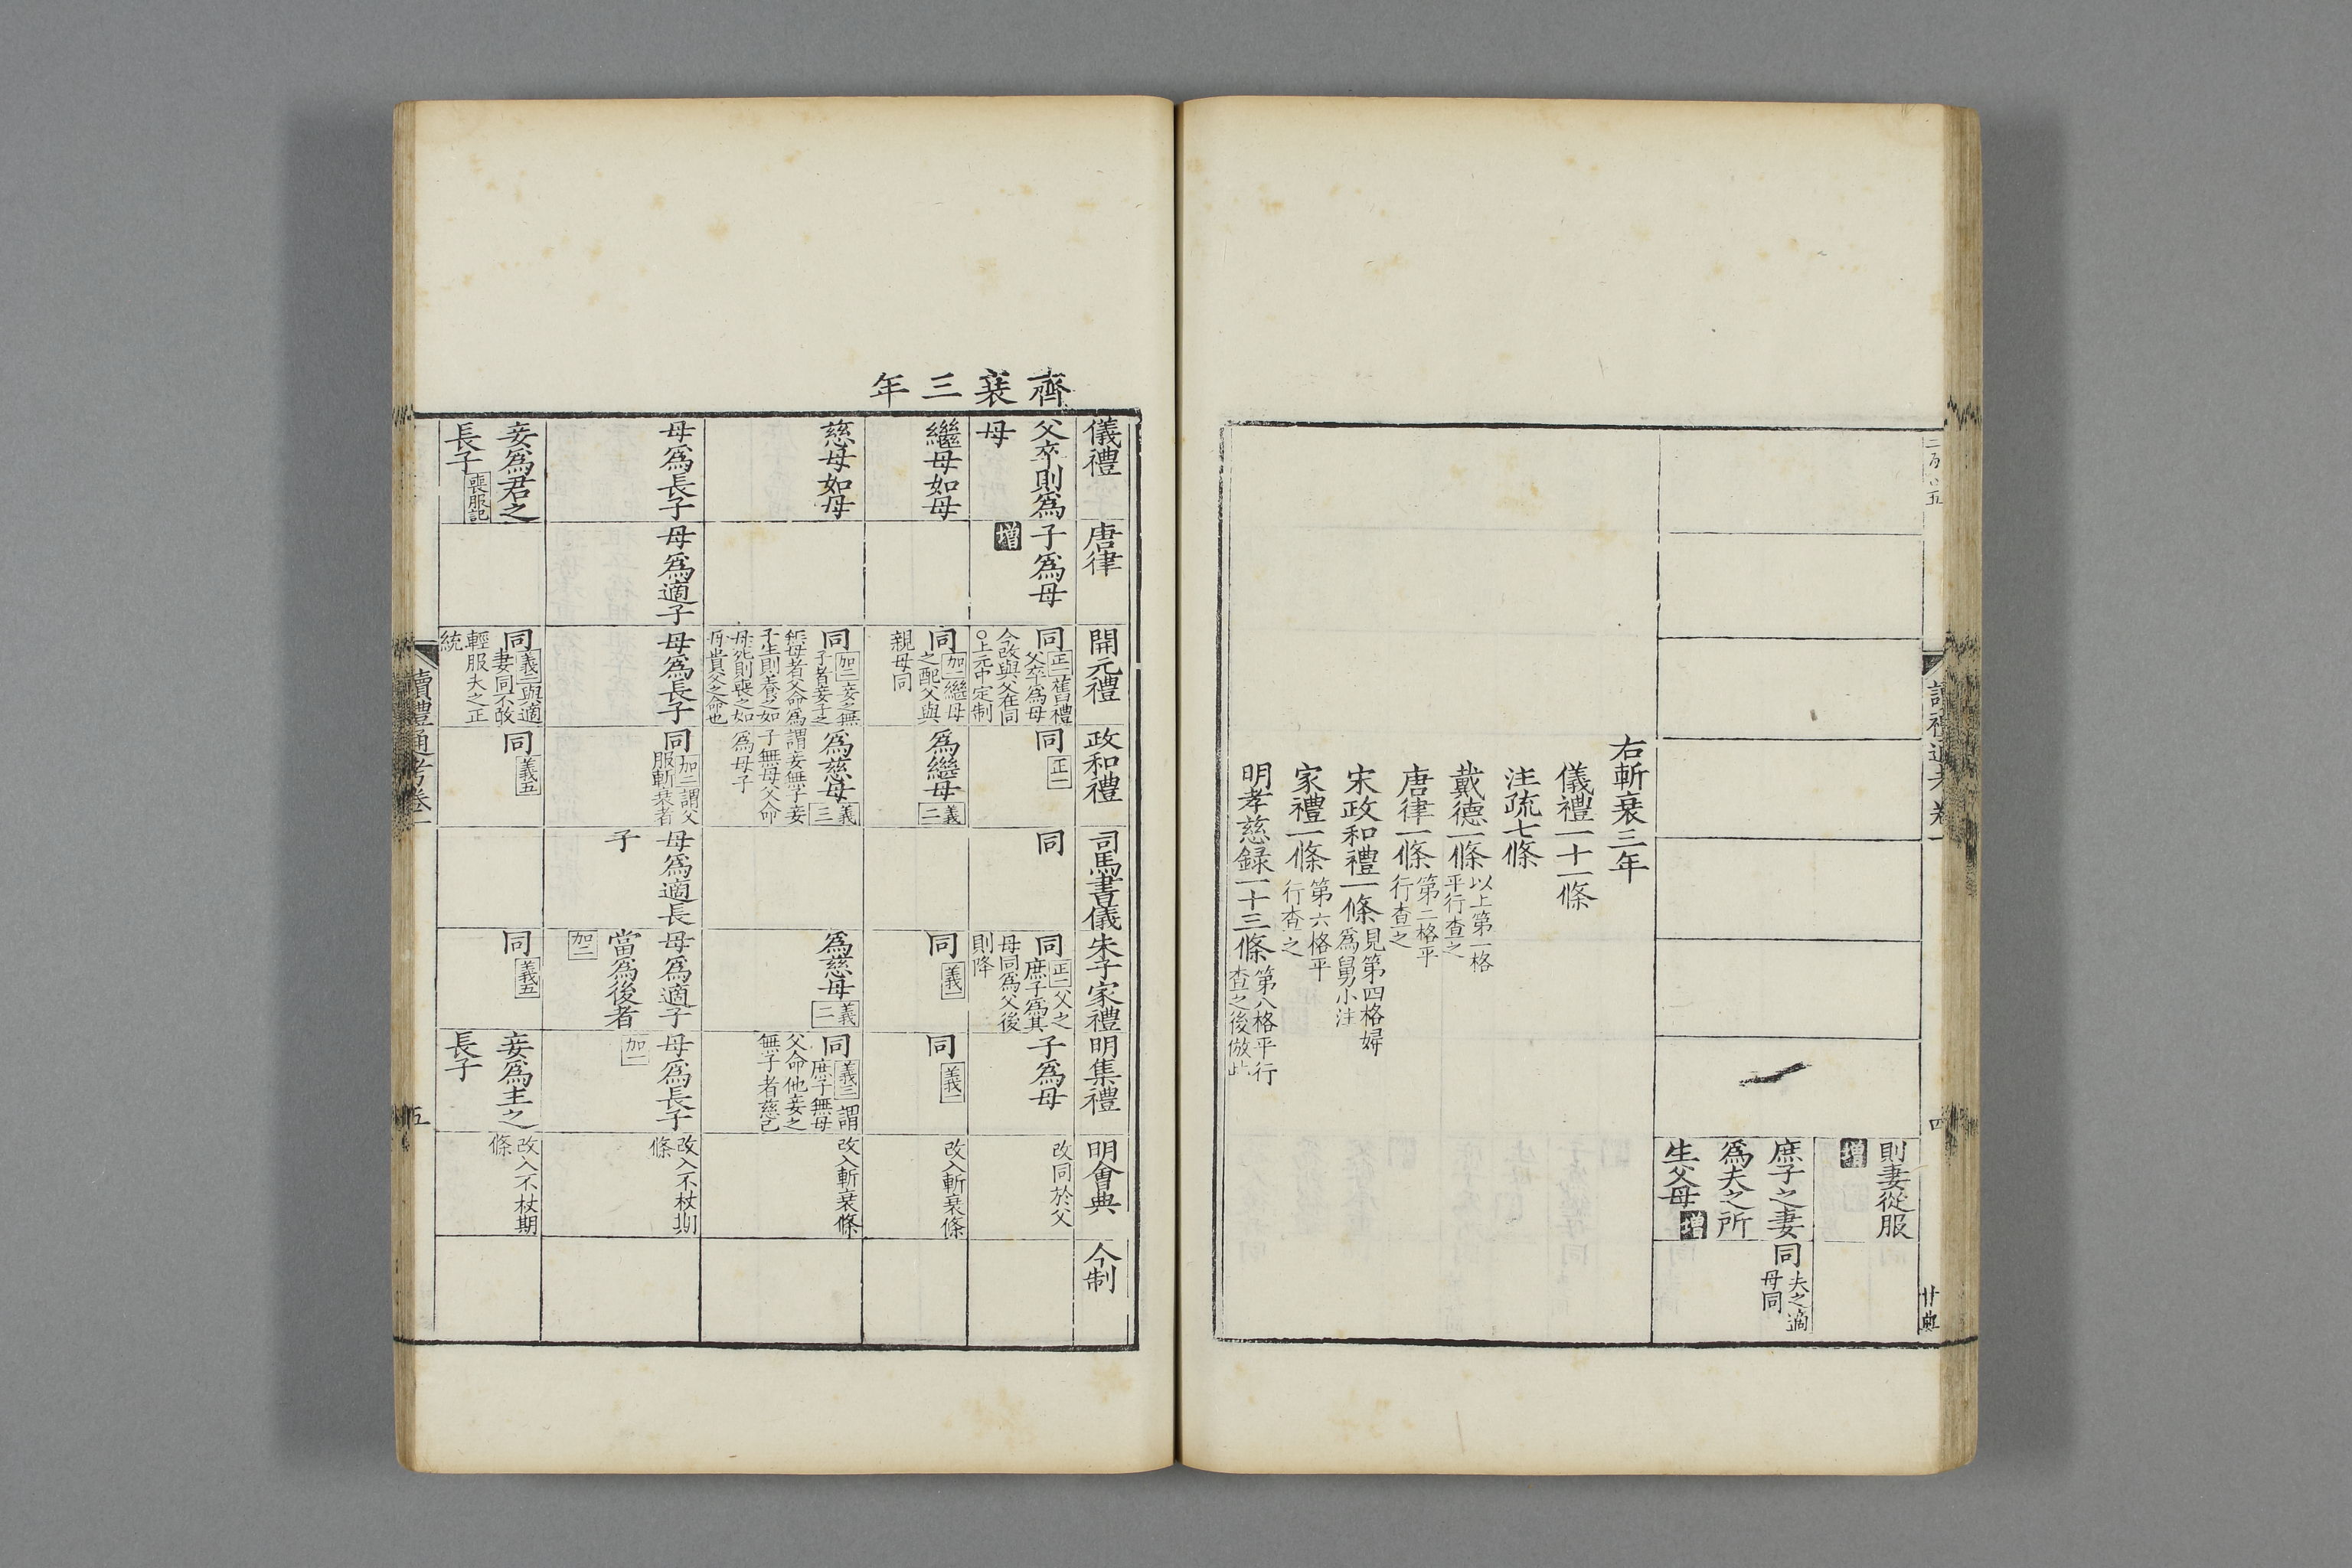 則妻從服
增
庶子之妻
爲夫之所
生父母增
同夫之適
母同
右斬衰三年
儀禮一十一條
注疏七條
戴德一條以上第一格
平行查之
唐律一條第二格平
行查之
宋政和禮一條見第四格婦
爲舅小注
家禮一條第六格平
行查之
明孝慈録一十三條第八格平行
查之後倣此
四
齊衰三年
儀禮
唐律
開元禮
政和禮
司馬書儀
朱子家禮
明集禮
明會典
今制
父卒則爲
母
子爲母
增
同正二舊禮
父卒爲母
今改與父在同
○上元中定制
同正一
同
同正二父之
庶子爲其
母同爲父後
則降
子爲母
改同於父
繼母如母
同加一繼母
之配父與
親母同
爲繼母義二
同義一
同義一
改入斬衰條
慈母如母
同加二妾之無
子者妾子之
無母者父命爲
子生則養之如
母死則喪之如
母貴父之命也
爲慈母義三
謂妾無子妾
子無母父命
爲母子
爲慈母義二
同義三謂
庶子無母
父命他妾之
無子者慈己
改入斬衰條
母爲長子
母爲適子
母爲長子
同加二謂父
服斬衰者
母爲適長
子
母爲適子
當爲後者
加二
母爲長子
加一
改入不杖期
條
妾爲君之
長子喪服記
同義三與適
妻同不敢
輕服夫之正
統
同義五
同義五
妾爲主之
長子
改入不杖期
條
讀禮通考卷一
五